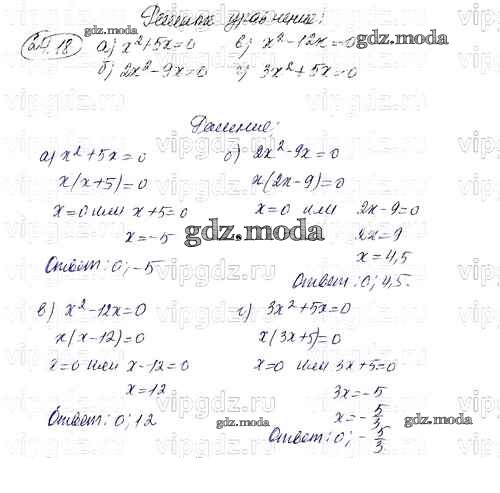 Решить уравнение:
24.18 а) x²+5x=0 в) x²-12x=0
б) 2x²-9x=0 г) 3x²+5x=0
Решение:
а) x²+5x=0
x(x+5)=0
x=0 или x+5=0
x=-5
Ответ: 0; -5
б) 2x²-9x=0
x(2x-9)=0
x=0 или 2x-9=0
2x=9
x=4,5
Ответ: 0; 4,5.
в) x²-12x=0
x(x-12)=0
x=0 или x-12=0
x=12
Ответ: 0; 12
г) 3x²+5x=0
x(3x+5)=0
x=0 или 3x+5=0
3x=-5
x=-5/3
Ответ: 0; -5/3
gdz.moda
vipgdz.ru